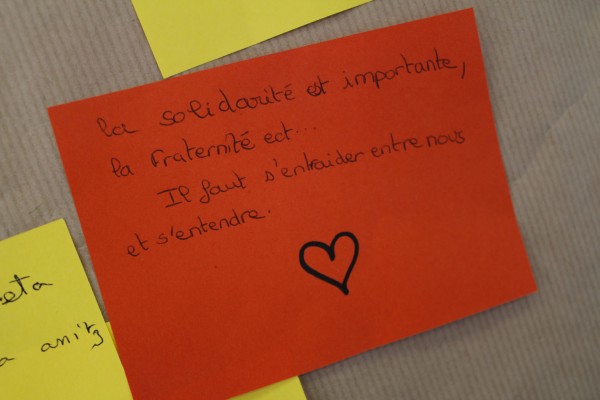 la solidarité est importante,
la fraternité ect...
Il faut s'entraider entre nous
et s'entendre.
eta
anitz